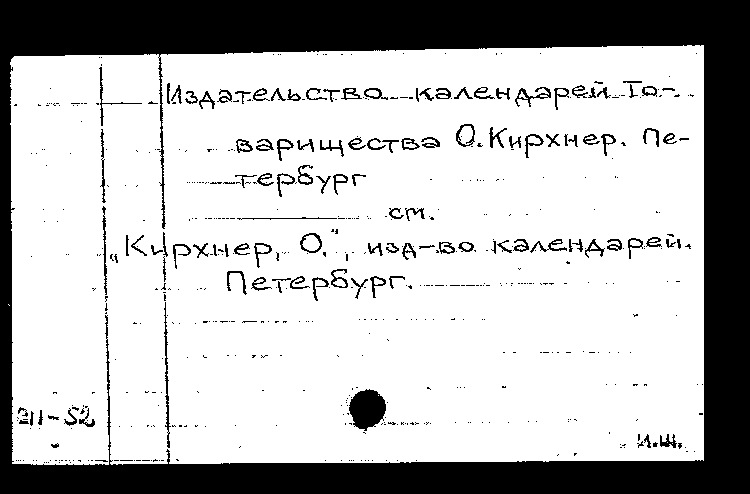 Издательство календарей То-
варищества О. Кирхнер. Пе-
тербург
см.
„Кирхнер, О.", изд-во календарей.
Петербург.
211-52
И.Ш.